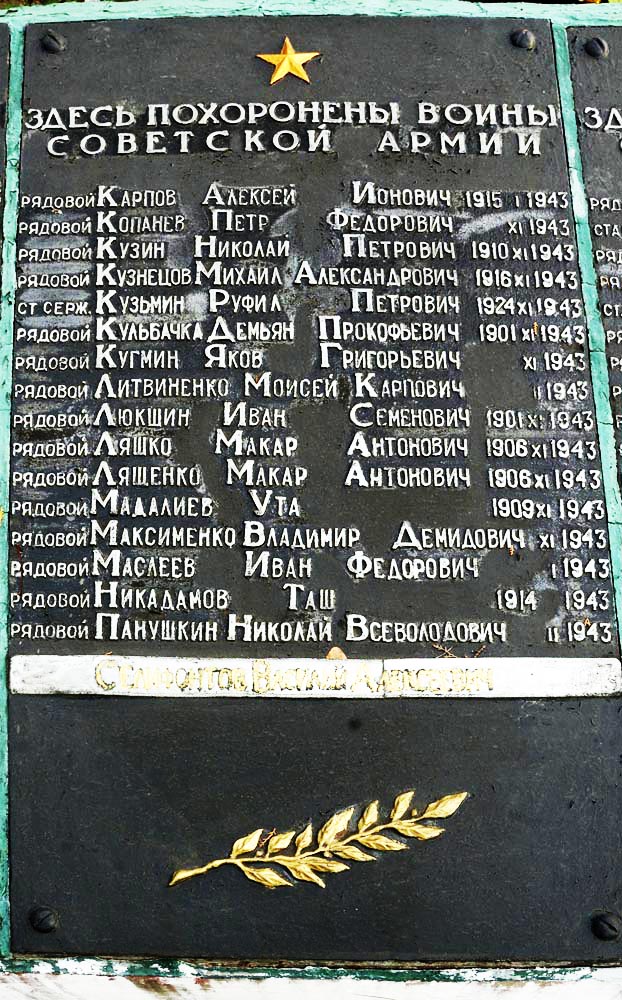 ЗДЕСЬ ПОХОРОНЕНЫ ВОИНЫ
СОВЕТСКОЙ АРМИИ
РЯДОВОЙ КАРПОВ АЛЕКСЕЙ ИОНОВИЧ 1915 I 1943
РЯДОВОЙ КОПАНЕВ ПЕТР ФЕДОРОВИЧ XI 1943
РЯДОВОЙ КУЗИН НИКОЛАЙ ПЕТРОВИЧ 1910 XI 1943
РЯДОВОЙ КУЗНЕЦОВ МИХАИЛ АЛЕКСАНДРОВИЧ 1916 XI 1943
СТ СЕРЖ. КУЗЬМИН РУФИЛ ПЕТРОВИЧ 1924 XI 1943
РЯДОВОЙ КУЛЬБАЧКА ДЕМЬЯН ПРОКОФЬЕВИЧ 1901 XI 1943
РЯДОВОЙ КУГМИН ЯКОВ ГРИГОРЬЕВИЧ XI 1943
РЯДОВОЙ ЛИТВИНЕНКО МОИСЕЙ КАРПОВИЧ II 1943
РЯДОВОЙ ЛЮКШИН ИВАН СЕМЕНОВИЧ 1901 XI 1943
РЯДОВОЙ ЛЯШКО МАКАР АНТОНОВИЧ 1906 XI 1943
РЯДОВОЙ ЛЯЩЕНКО МАКАР АНТОНОВИЧ 1906 XI 1943
РЯДОВОЙ МАДАЛИЕВ УТА 1909 XI 1943
РЯДОВОЙ МАКСИМЕНКО ВЛАДИМИР ДЕМИДОВИЧ XI 1943
РЯДОВОЙ МАСЛЕЕВ ИВАН ФЕДОРОВИЧ I 1943
РЯДОВОЙ НИКАДАМОВ ТАШ 1914 1943
РЯДОВОЙ ПАНУШКИН НИКОЛАЙ ВСЕВОЛОДОВИЧ II 1943
ВАСИЛИЙ АЛЕКСЕЕВИЧ